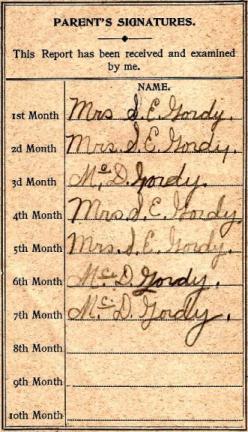 PARENT'S SIGNATURES.
This Report has been received and examined
by me.
NAME.
1st Month Mrs S. E. Gordy.
2d Month Mrs. S. E. Gordy.
3d Month Mc. D. Gordy.
4th Month Mrs. S. E. Gordy.
5th Month Mrs. S. E. Gordy.
6th Month Mc. D. Gordy.
7th Month Mc. D. Gordy.
8th Month
9th Month
10th Month